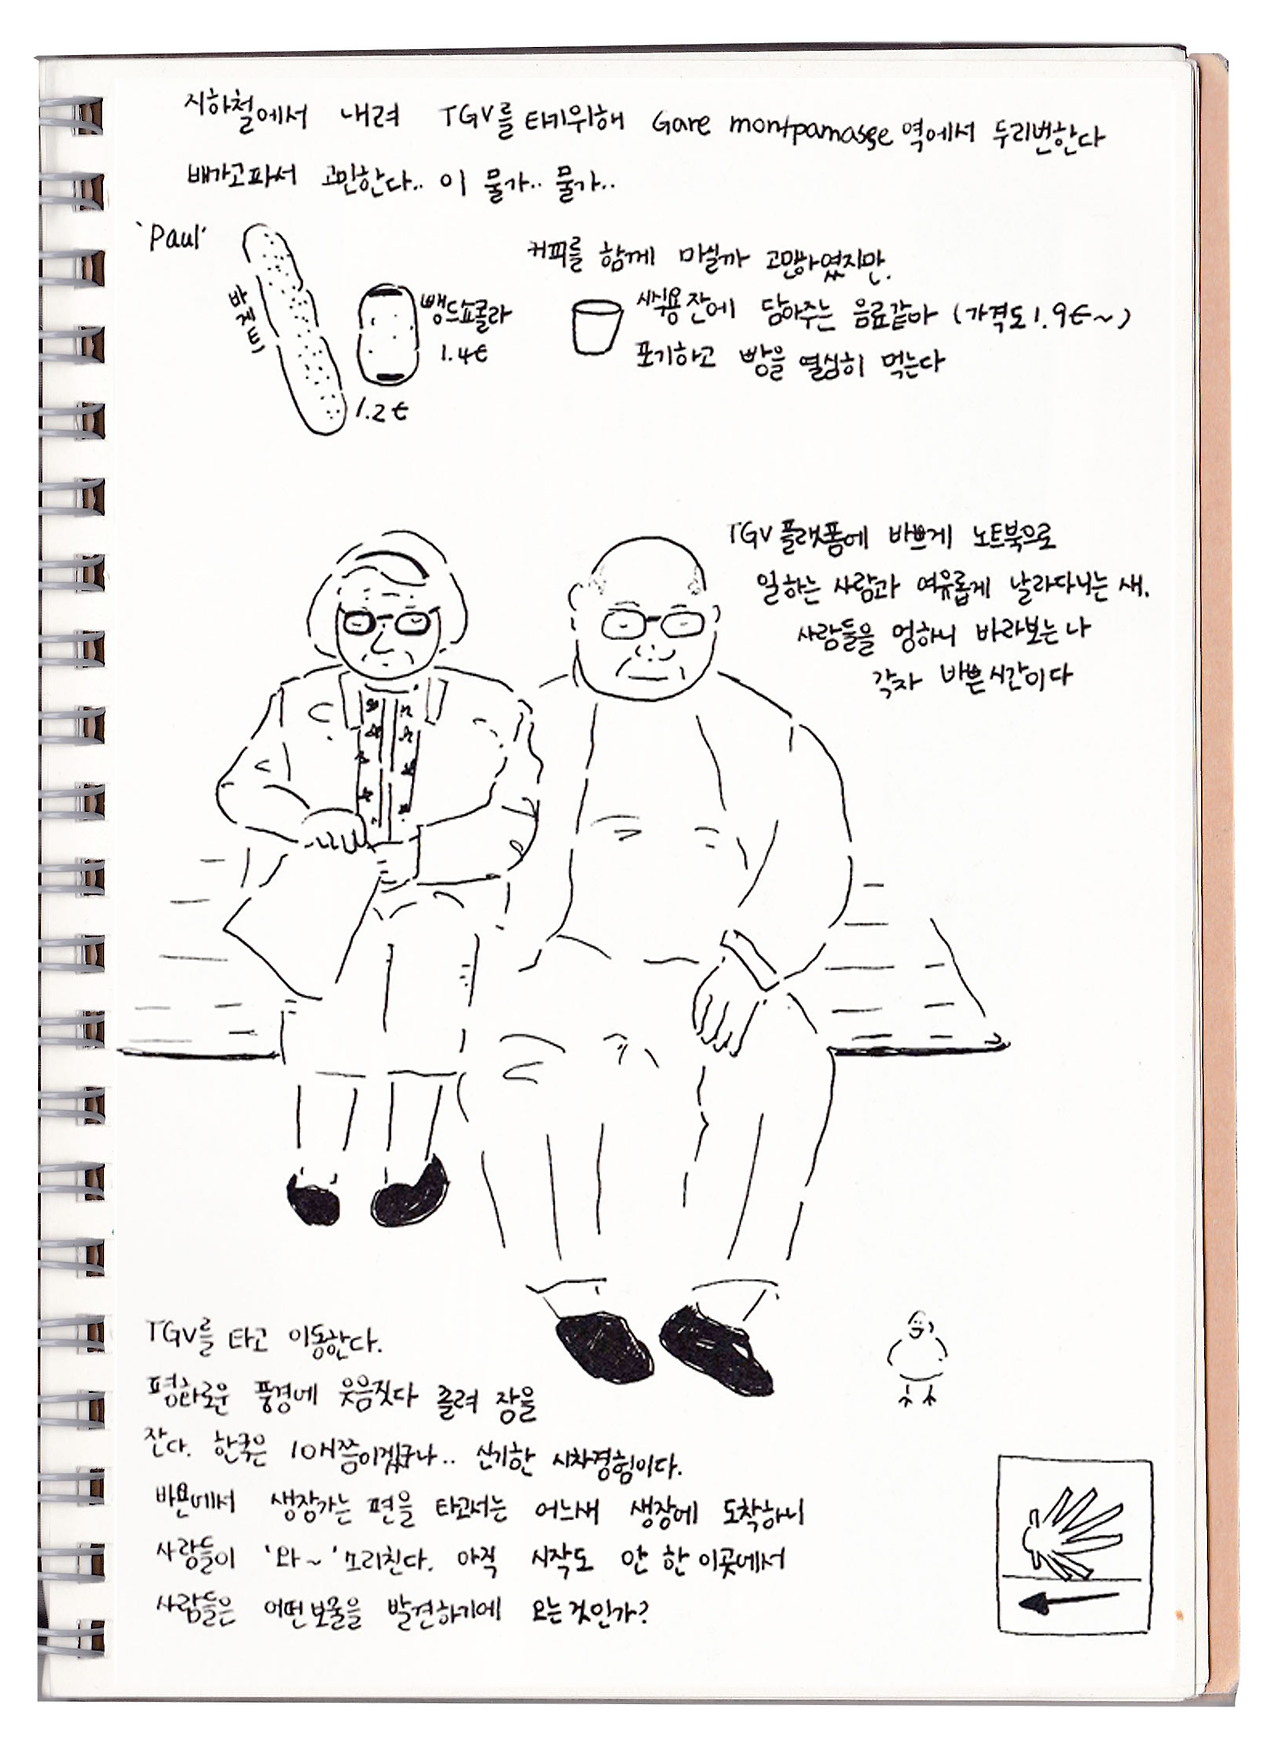 지하철에서 내려 TGV를 타기위해 Gare montparnasse 역에서 두리번한다
배가고파서 고민한다.. 이 물가.. 물가..
'Paul'
바게트
1.2€
뺑드쇼콜라
1.4€
커피를 함께 마실까 고민하였지만.
시식용잔에 담아주는 음료같아 (가격도 1.9€~)
포기하고 빵을 열심히 먹는다
TGV 플랫폼에 바쁘게 노트북으로
일하는 사람과 여유롭게 날라다니는 새.
사람들을 멍하니 바라보는 나
각자 바쁜 시간이다
TGV를 타고 이동한다.
평화로운 풍경에 웃음짓다 졸려 잠을
잔다. 한국은 10시쯤이겠구나.. 신기한 시차경험이다.
바욘에서 생장가는 편을 타고서는 어느새 생장에 도착하니
사람들이 '와~' 소리친다. 아직 시작도 안 한 이곳에서
사람들은 어떤 보물을 발견하기에 오는것인가?